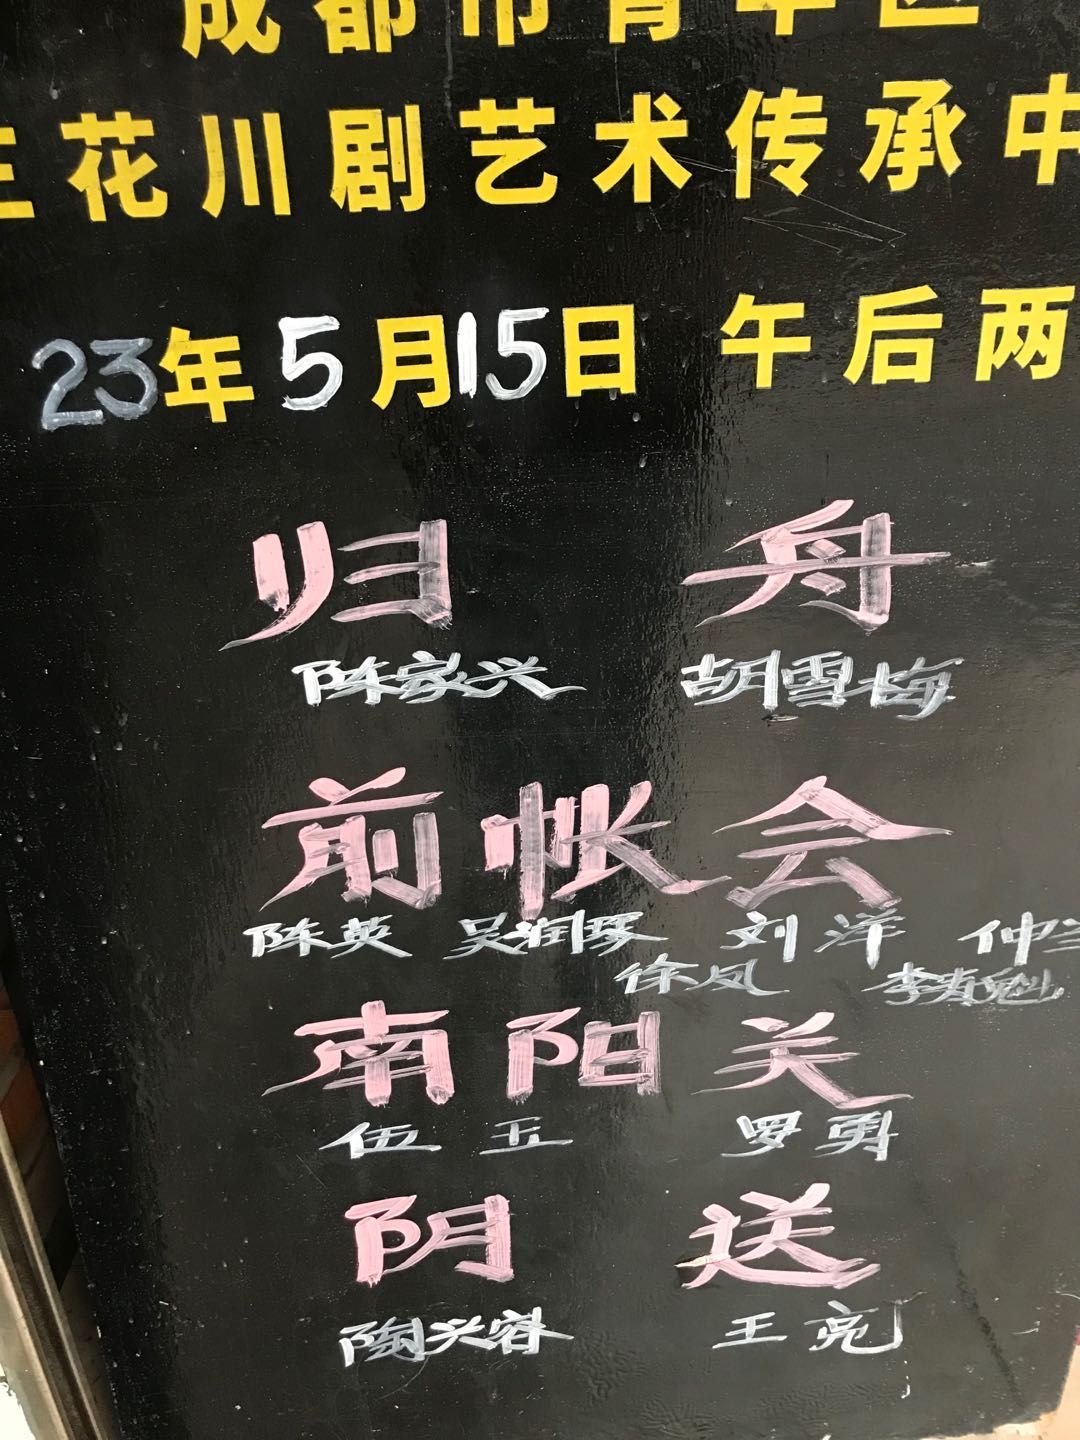 成都市青羊区
兰花川剧艺术传承中
23年5月15日 午后两
归舟
陈家兴 胡雪梅
前帐会
陈英 吴润琴 刘洋 仲
徐凤 李寿魁
南阳关
伍玉 罗勇
阴送
陶兴容 王亮